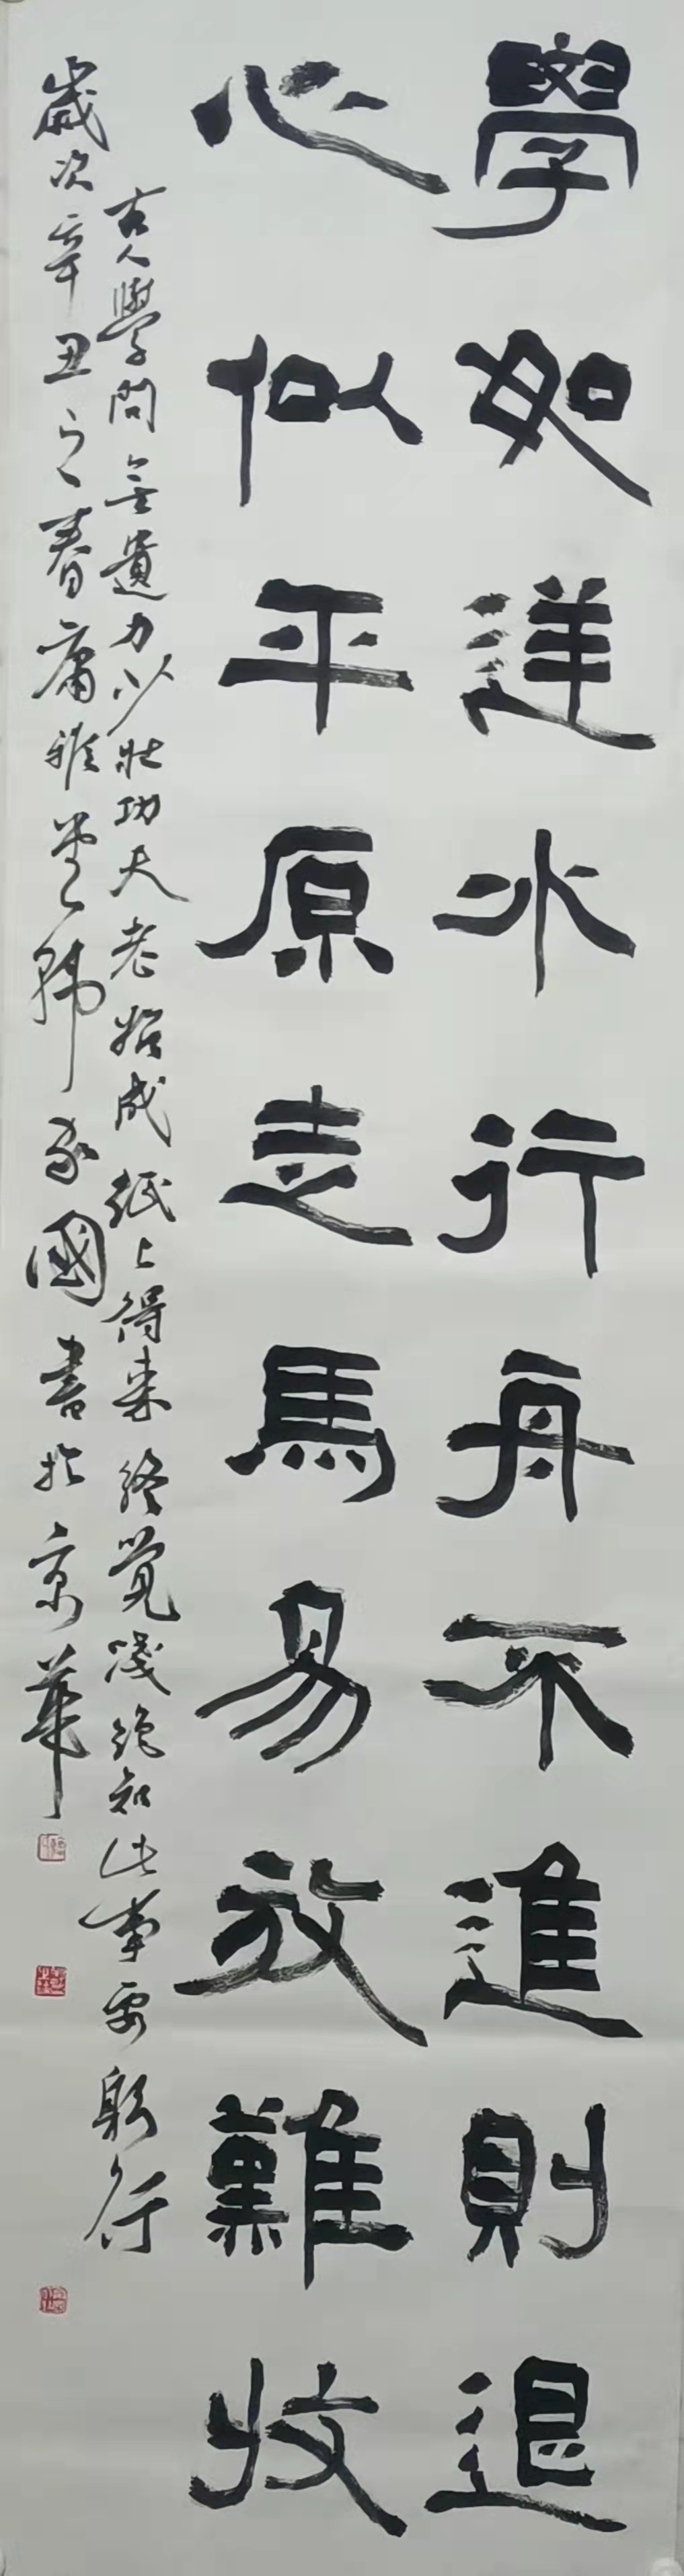 學如逆水行舟不進則退
心似平原走馬易放難收
古人學問無遺力少壯功夫老始成紙上得来終覺淺絶知此事要躬行
歲次辛丑之春庸雅堂韩永國書於京華